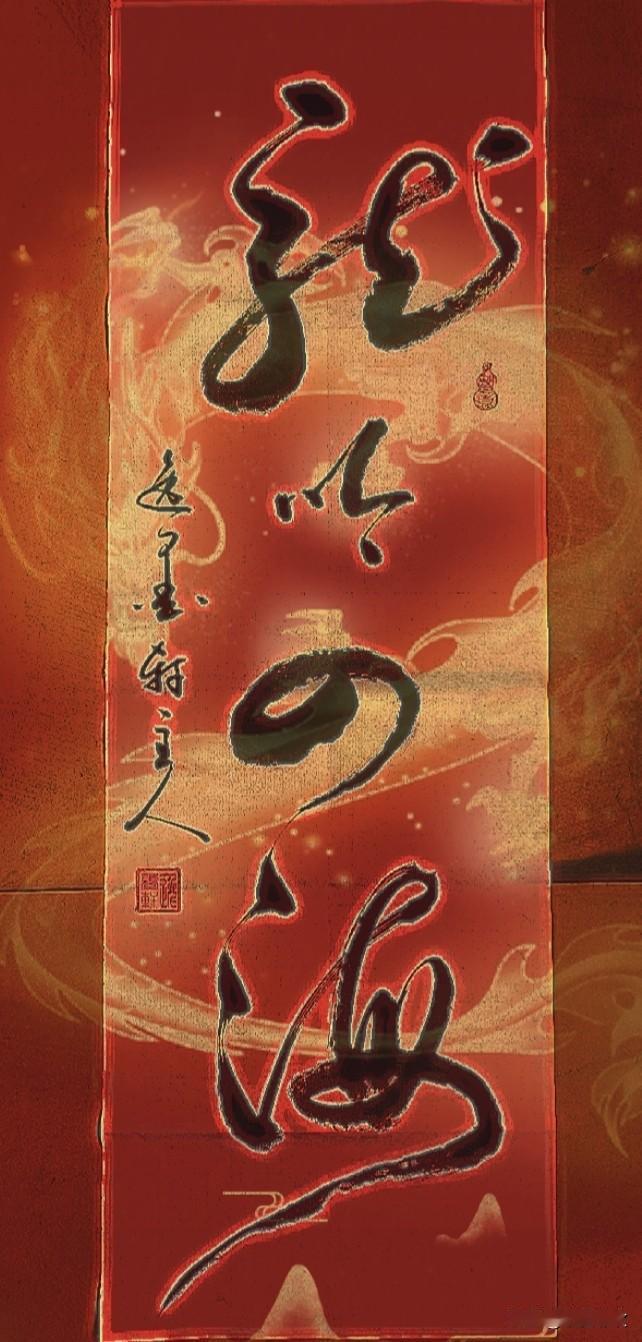 龍吟四海
逸墨軒主人